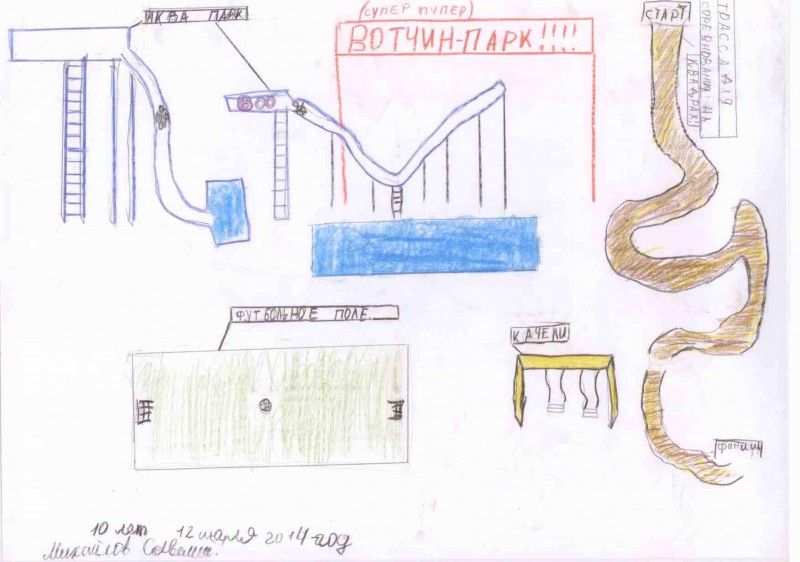 АКВА ПАРК
(СУПЕР ПУПЕР)
ВОТЧИН-ПАРК!!!!
СТАРТ
ТРАССА ДЛЯ
СОРЕВНОВАНИЙ НА
КВАДРАХ!
ФУТБОЛЬНОЕ ПОЛЕ
КАЧЕЛИ
Финиш
10 лет 12 марта 2014 год
Михайлов